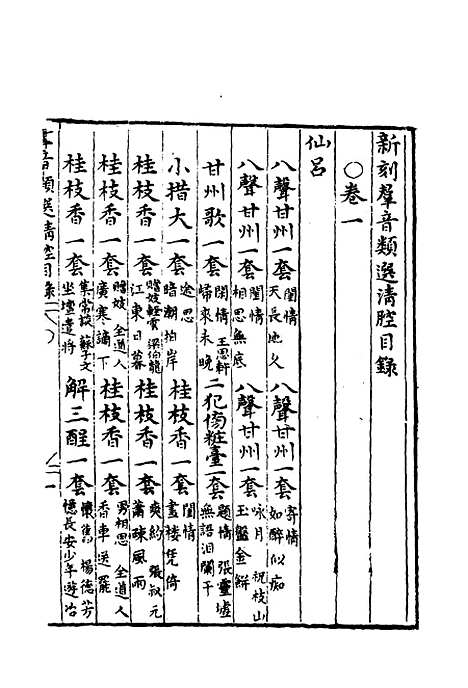 新刻羣音類選清腔目錄
○卷一
仙呂
八聲甘州一套 閨情 天長地久 八聲甘州一套 寄情 如醉似痴
八聲甘州一套 閨情 相思無底 八聲甘州一套 咏月 祝枝山 玉盤金餅
甘州歌一套 閨情 王思軒 歸來未晚 二犯傍粧臺一套 題情 張靈墟 無語泪闌干
小措大一套 途思 暗潮拍岸 桂枝香一套 閨情 畫樓凭倚
桂枝香一套 贈妓輕雲 梁伯龍 江東日暮 桂枝香一套 爽約 張叔元 蕭疎風雨
桂枝香一套 贈妓 全道人 廣寒謫下 桂枝香一套 男相思 全道人 香車送罷
桂枝香一套 集常談 蘇子文 坐壇遣將 解三酲一套 懷舊 楊德芳 憶長安少年遊冶
音類選清腔目錄